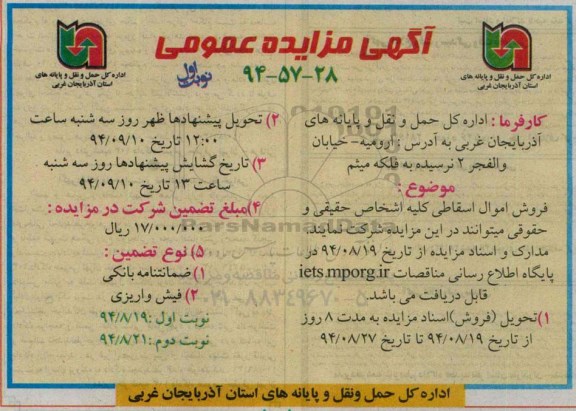 آگهی مزایده عمومی
۹۴-۵۷-۲۸
نوبت اول
اداره کل حمل و نقل و پایانه های
استان آذربایجان غربی
اداره کل حمل و نقل و پایانه های
استان آذربایجان غربی
کارفرما : اداره کل حمل و نقل و پایانه های
آذربایجان غربی به آدرس : ارومیه- خیابان
والفجر ۲ نرسیده به فلکه میثم
موضوع :
فروش اموال اسقاطی کلیه اشخاص حقیقی و
حقوقی میتوانند در این مزایده شرکت نمایند،
مدارک و اسناد مزایده از تاریخ ۹۴/۰۸/۱۹ در
پایگاه اطلاع رسانی مناقصات iets.mporg.ir
قابل دریافت می باشد.
۱)تحویل (فروش)اسناد مزایده به مدت ۸ روز
از تاریخ ۹۴/۰۸/۱۹ تا تاریخ ۹۴/۰۸/۲۷
۲) تحویل پیشنهادها ظهر روز سه شنبه ساعت
۱۲:۰۰ تاریخ ۹۴/۰۹/۱۰
۳) تاریخ گشایش پیشنهادها روز سه شنبه
ساعت ۱۳ تاریخ ۹۴/۰۹/۱۰
۴)مبلغ تضمین شرکت در مزایده :
۱۷/۰۰۰/۰۰۰ ریال
۵) نوع تضمین :
۱) ضمانتنامه بانکی
۲) فیش واریزی
نوبت اول :۹۴/۸/۱۹
نوبت دوم :۹۴/۸/۲۱
ParsNamadData
۰۲۱-۸۸۳۴۹۶۷۰-۵
اداره کل حمل ونقل و پایانه های استان آذربایجان غربی